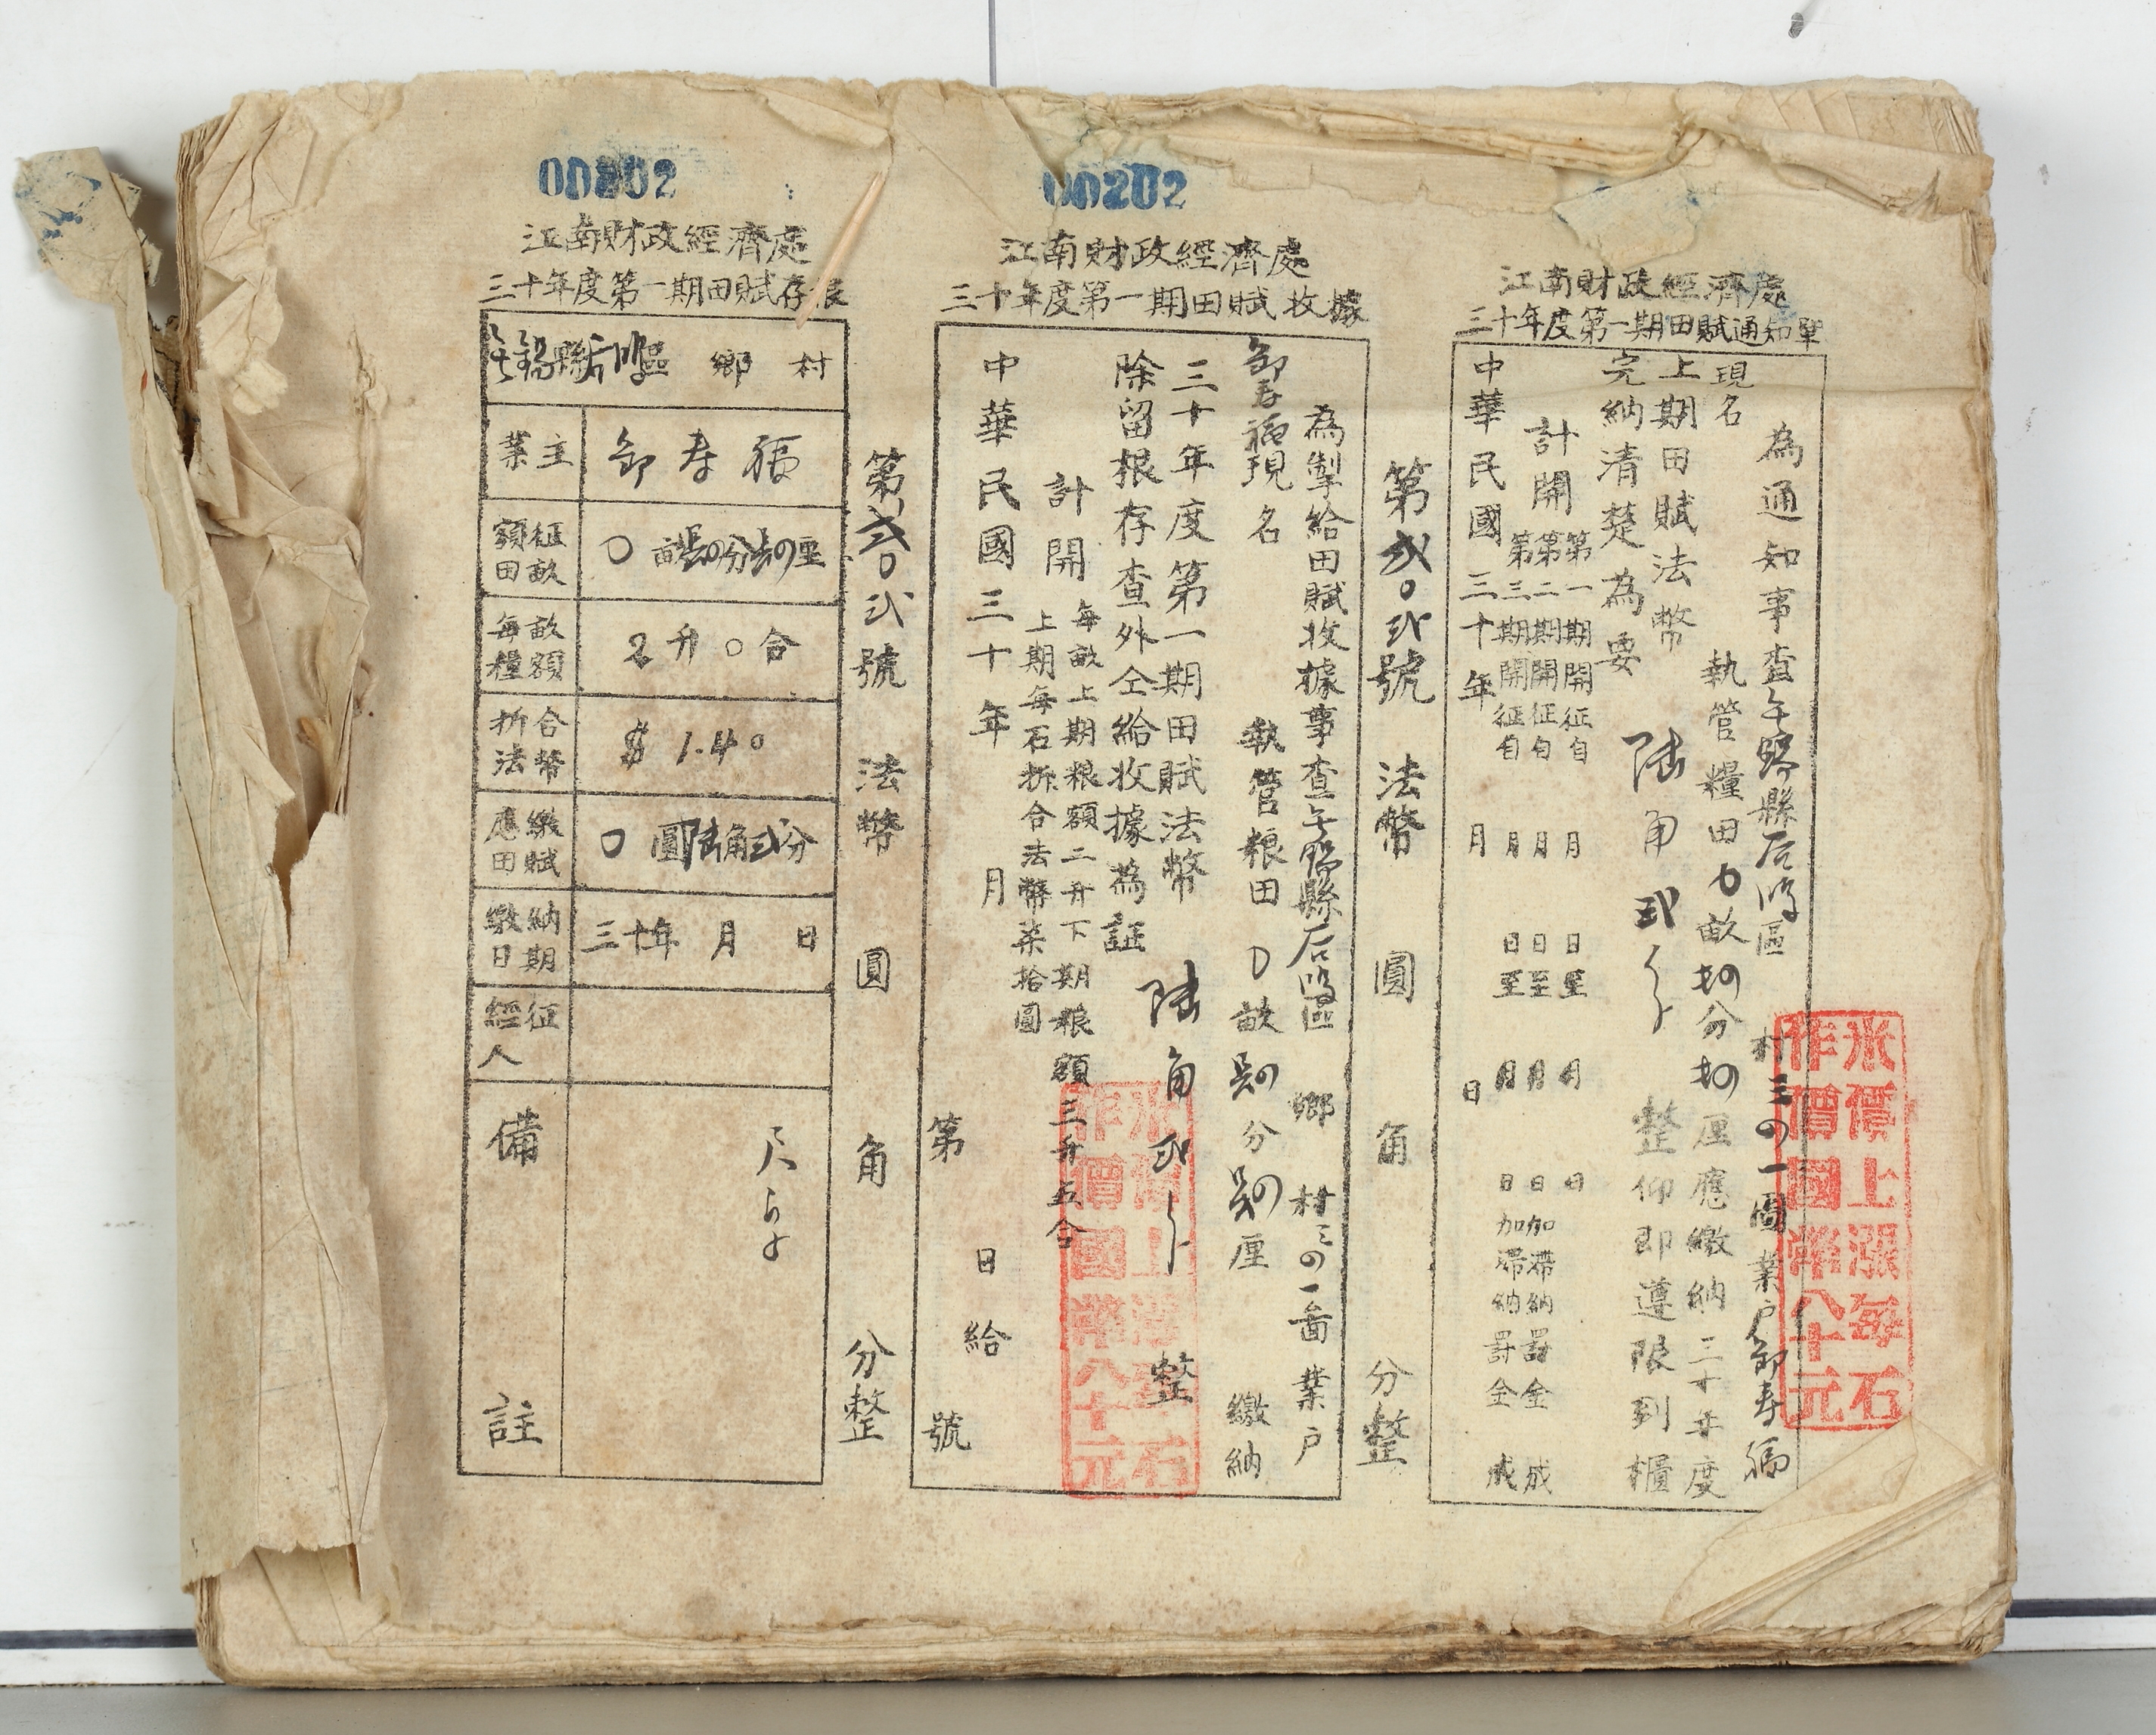 江南財政經濟處
三十年度第一期田賦通知單
為通知事查無錫縣 區 村三四一圖業戶鄒寿福
現名 執管糧田〇畝 分 厘應繳納三十年度
上期田賦法幣 陸角弍分 整仰即遵限到櫃
完納清楚為要
計開
第一期開征自 月 日至 月 日
第二期開征自 月 日至 月 日加滯納罰金 成
第三期開征自 月 日至 月 日加滯納罰金 成
中華民國三十年 月 日
米價上漲每石
作價國幣八十元
第弍〇弍號 法幣 圓 角 分整
00202
江南財政經濟處
三十年度第一期田賦收據
為掣給田賦收據事查無錫縣 區 鄉 村三四一啚業戶
鄒寿福現名 執管粮田〇畝 分 厘 繳納
三十年度第一期田賦法幣 陸角弍分 整
除留根存查外仝給收據為証
計開
每畝上期粮額二升下期粮額三升五合
上期每石拆合法幣柒拾圓
中華民國三十年 月 日給
第 號
米價上漲每石
作價國幣八十元
第弍〇弍號 法幣 圓 角 分整
00202
江南財政經濟處
三十年度第一期田賦存根
無錫縣 區 鄉 村
業主 鄒寿福
額征田畝 〇畝 分 厘
每畝糧額 2升〇合
折合法幣 $1.40
應繳田賦 〇圓陸角弍分
繳納日期 三十年 月 日
經征人
備註